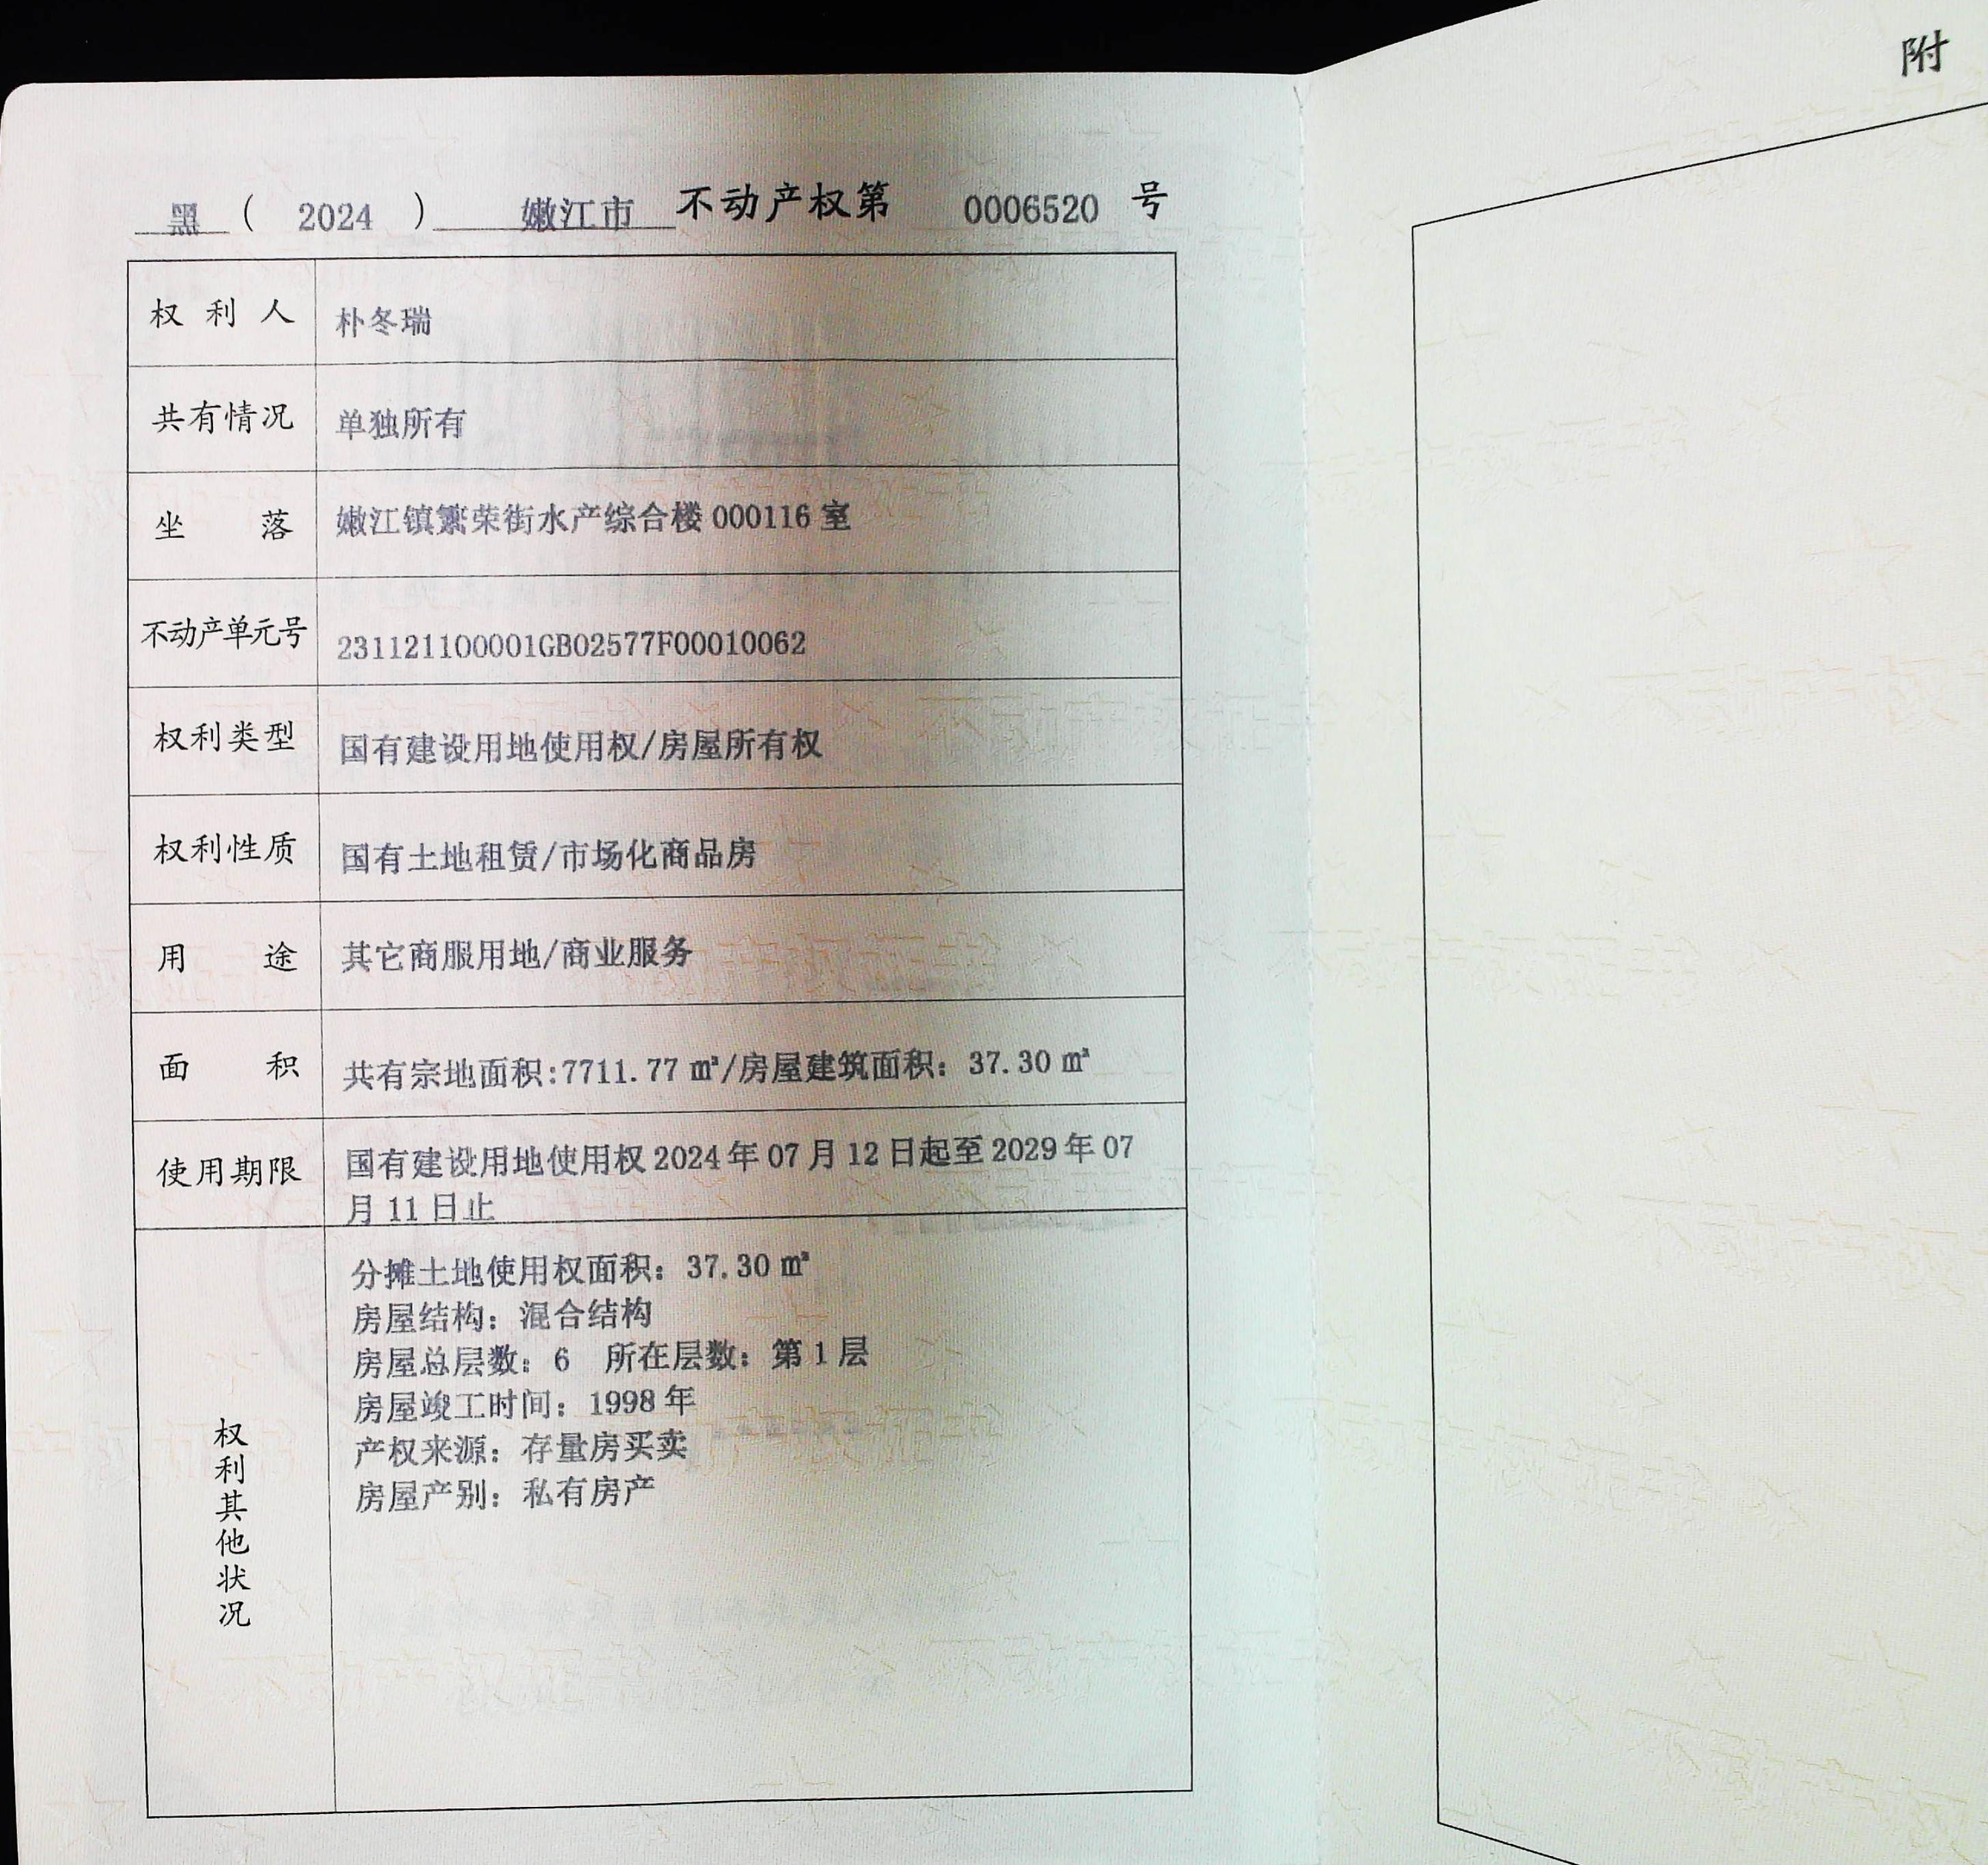 黑 ( 2024 ) 嫩江市 不动产权第 0006520 号
附
权利人 朴冬瑞
共有情况 单独所有
坐落 嫩江镇繁荣街水产综合楼 000116 室
不动产单元号 231121100001GB02577F00010062
权利类型 国有建设用地使用权/房屋所有权
权利性质 国有土地租赁/市场化商品房
用途 其它商服用地/商业服务
面积 共有宗地面积:7711.77 ㎡/房屋建筑面积：37.30 ㎡
使用期限 国有建设用地使用权 2024 年 07 月 12 日起至 2029 年 07
月 11 日止
权利其他状况
分摊土地使用权面积：37.30 ㎡
房屋结构：混合结构
房屋总层数：6 所在层数：第 1 层
房屋竣工时间：1998 年
产权来源：存量房买卖
房屋产别：私有房产